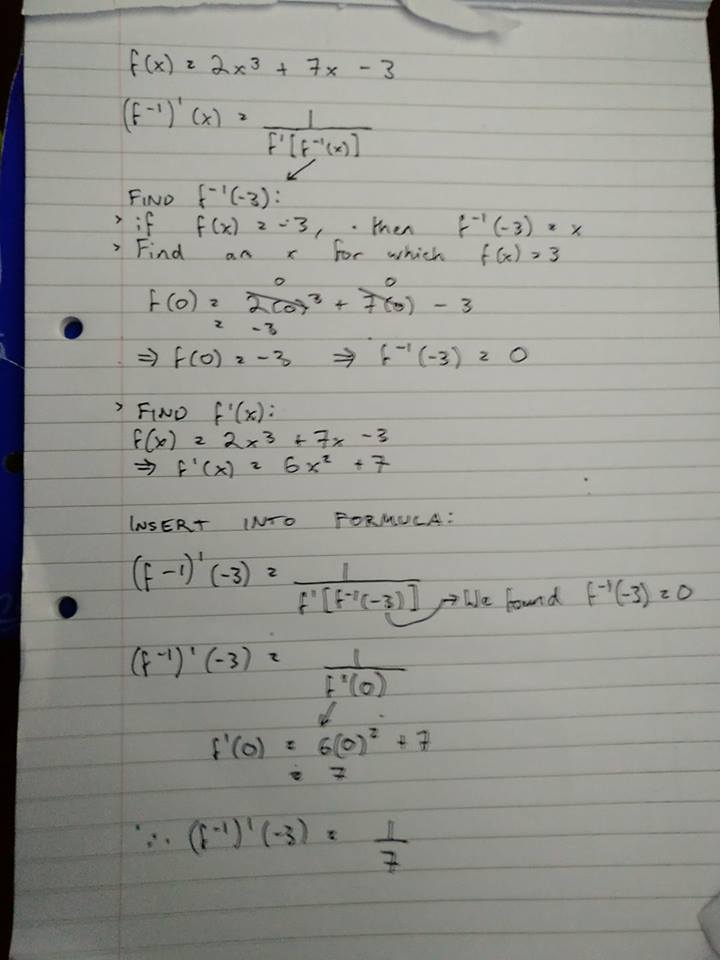 f(x) = 2x³ + 7x - 3
(f⁻¹)'(x) = 1 / f'[f⁻¹(x)]
FIND f⁻¹(-3):
> if f(x) = -3, then f⁻¹(-3) = x
> Find an x for which f(x) = 3
0 0
f(0) = 2(0)³ + 7(0) - 3
= -3
⇒ f(0) = -3 ⇒ f⁻¹(-3) = 0
> FIND f'(x):
f(x) = 2x³ + 7x - 3
⇒ f'(x) = 6x² + 7
INSERT INTO FORMULA:
(f-1)'(-3) = 1 / f'[f⁻¹(-3)] → We found f⁻¹(-3) = 0
(f⁻¹)'(-3) = 1 / f'(0)
f'(0) = 6(0)² + 7
= 7
∴ (f⁻¹)'(-3) = 1 / 7